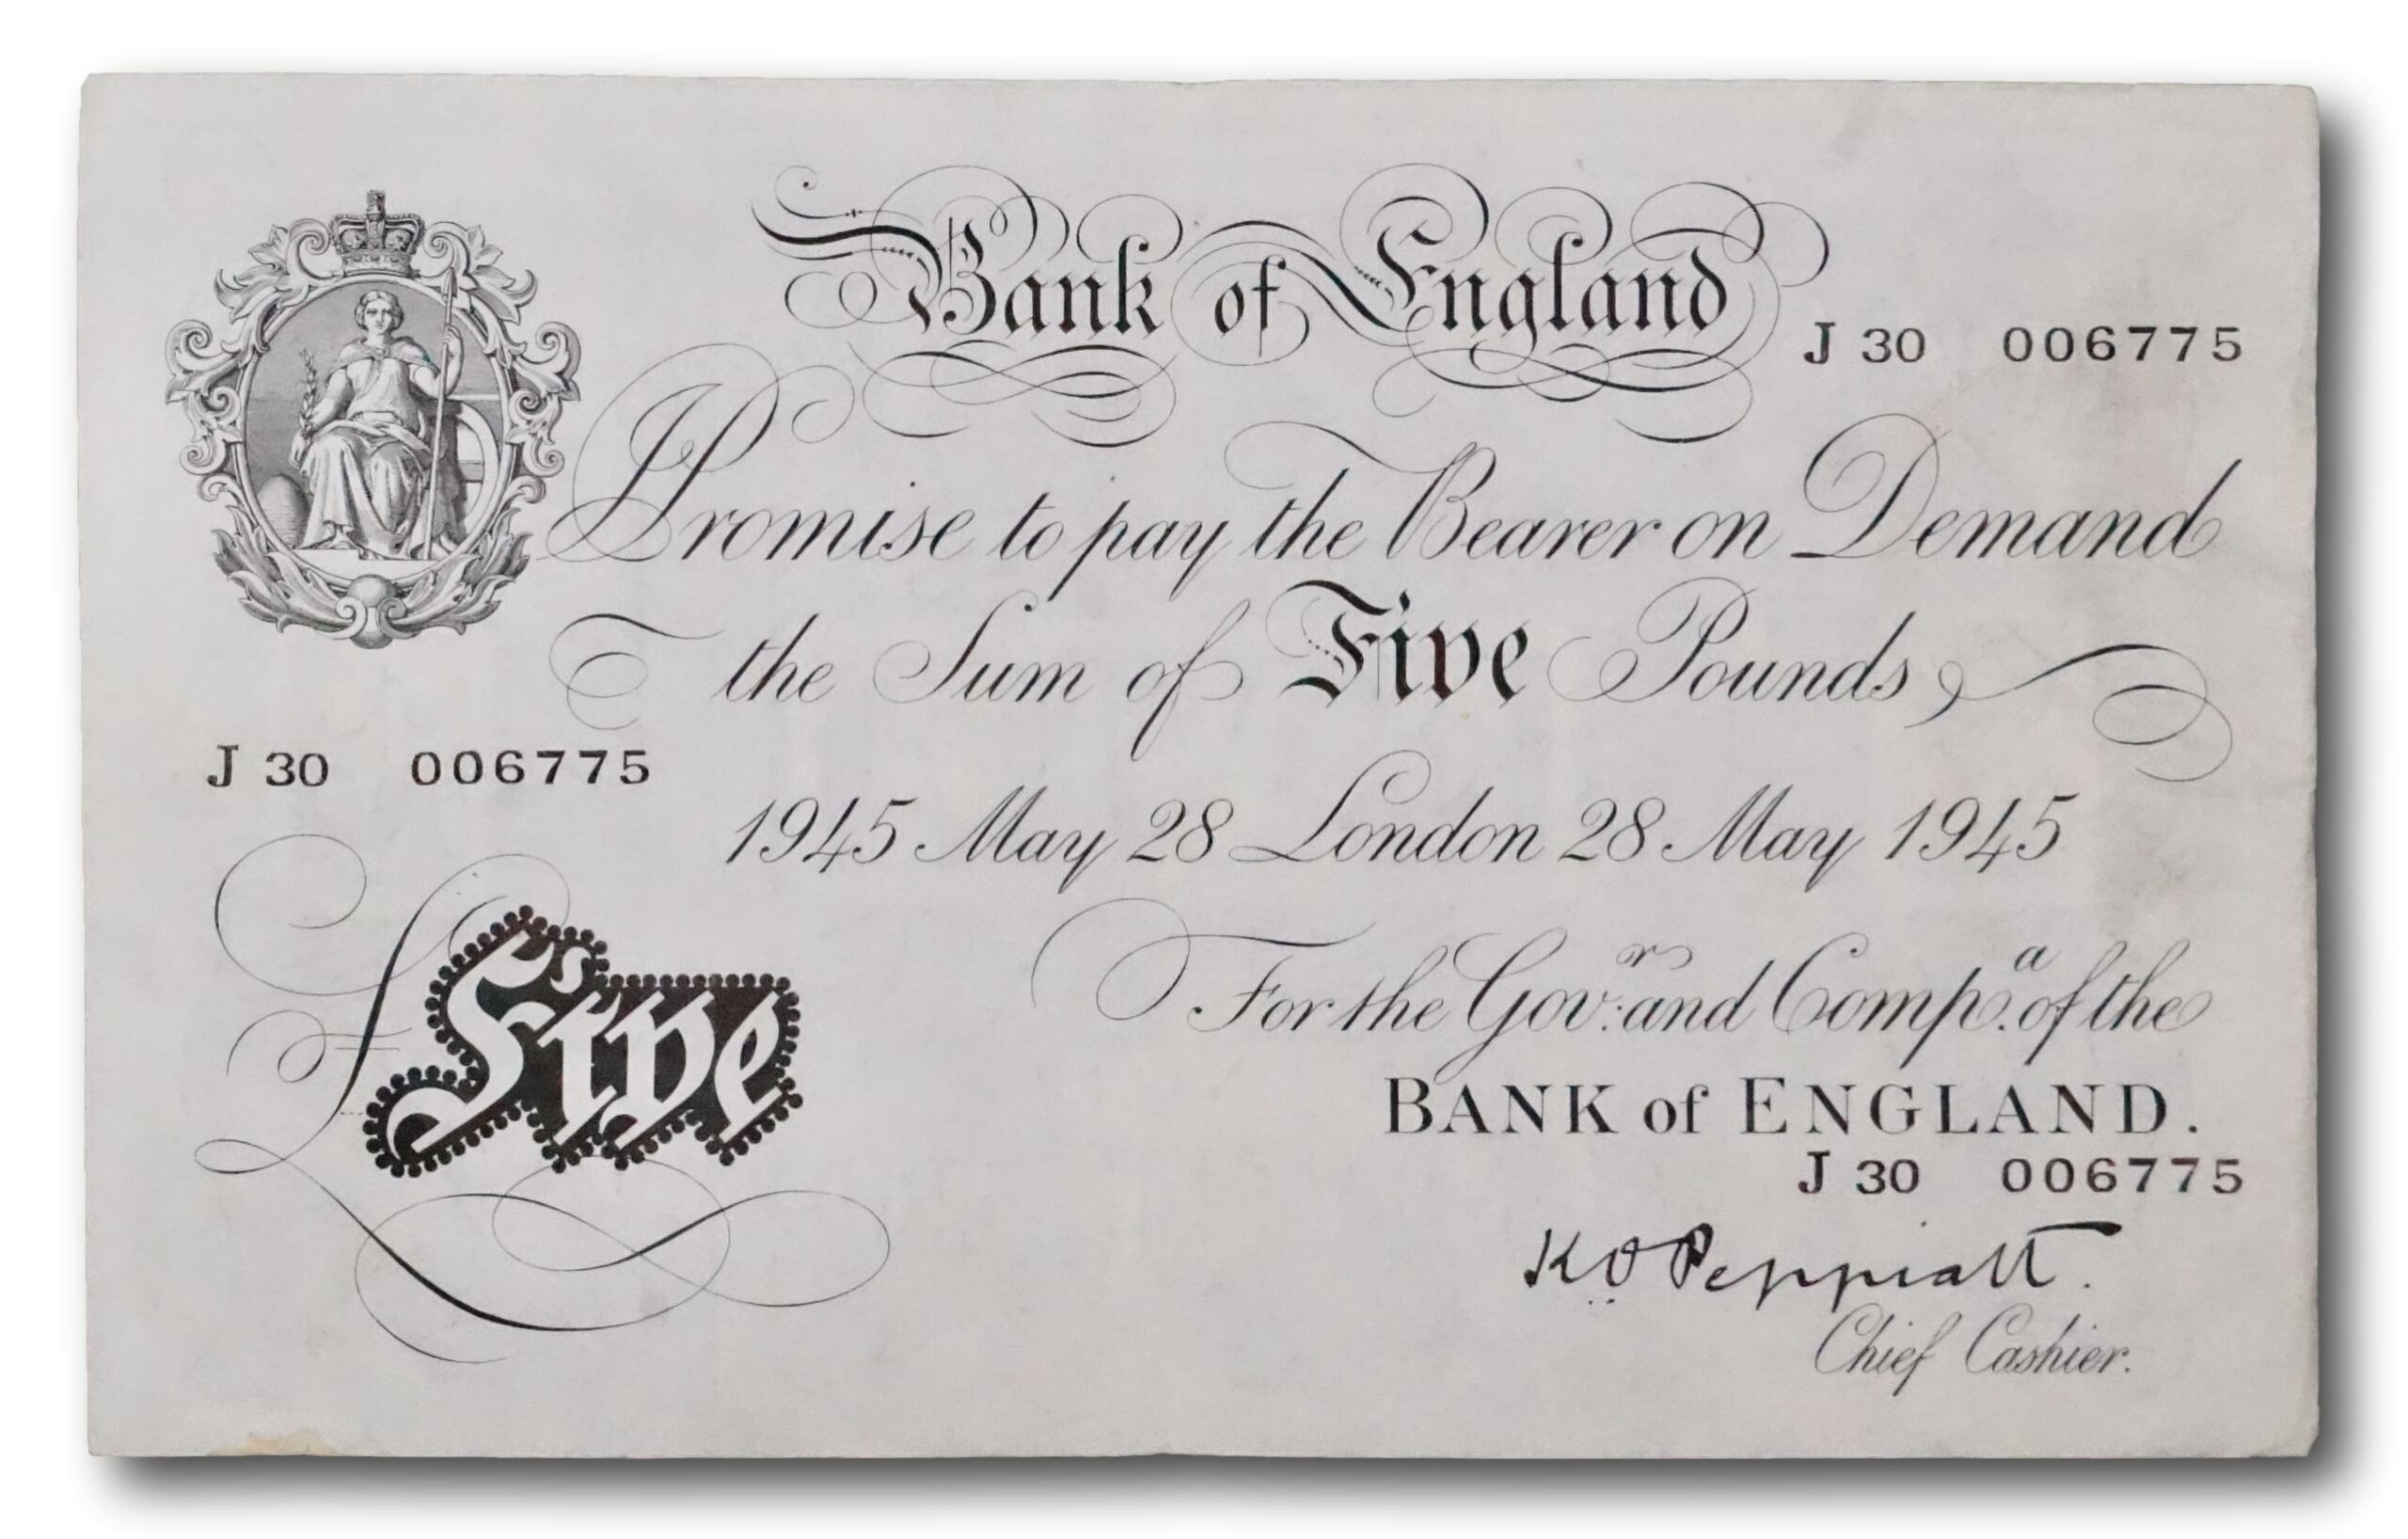 Bank of England
J 30 006775
I Promise to pay the Bearer on Demand
the Sum of Five Pounds,
J 30 006775
1945 May 28 London 28 May 1945
£Five
For the Gov.r and Comp.a of the
BANK of ENGLAND.
J 30 006775
K O Peppiatt.
Chief Cashier.